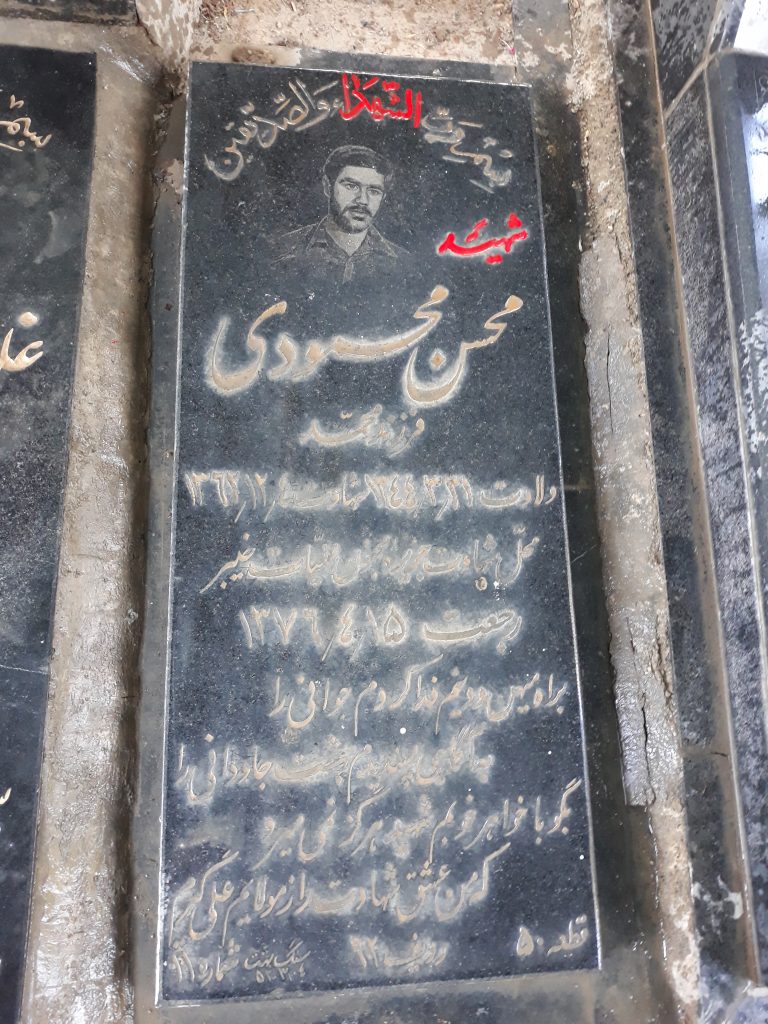 الشهداء والصدیقین
شهید
محسن محمودی
فرزند محمد
ولادت ۱۳۴۴/۳/۲۱ شهادت ۱۳۶۲/۱۲/
محل شهادت جزیره مجنون عملیات خیبر
رجعت ۱۳۷۶/۴/۱۵
براه میهن و دینم فدا کردم جوانی را
بهشت جاودانی را
بگو با خواهر خوبم شهید هرگز نمی میرد
که من عشق شهادت را از مولایم علی
قطعه ۵۰ ردیف ۲۲ شماره ۲۱